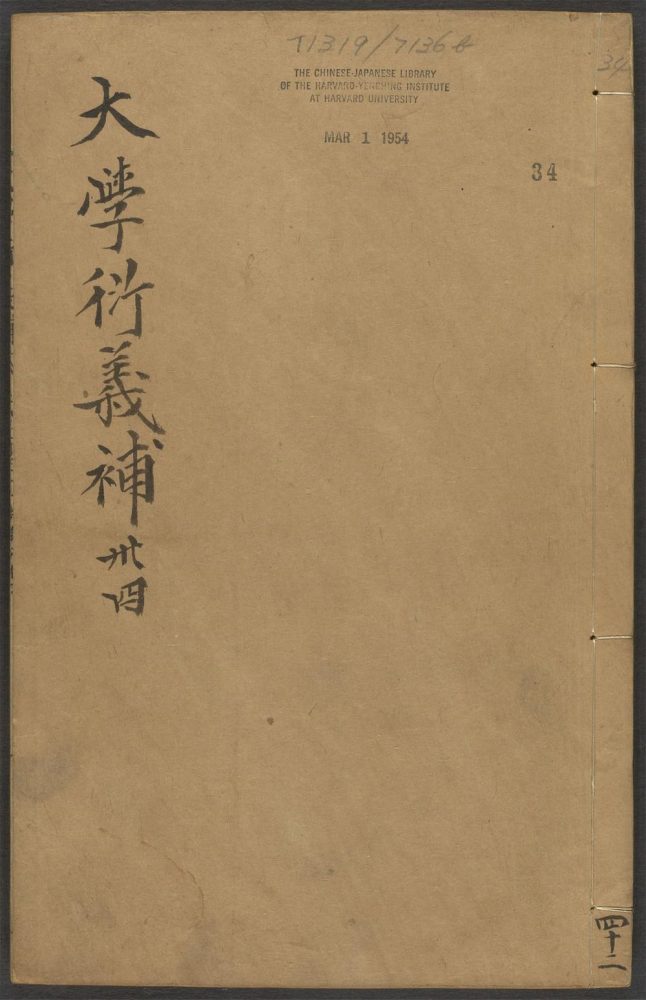 T1319/7136b
34
THE CHINESE-JAPANESE LIBRARY
OF THE HARVARD-YENCHING INSTITUTE
AT HARVARD UNIVERSITY
MAR 1 1954
34
大學衍義補
卅四
四十二